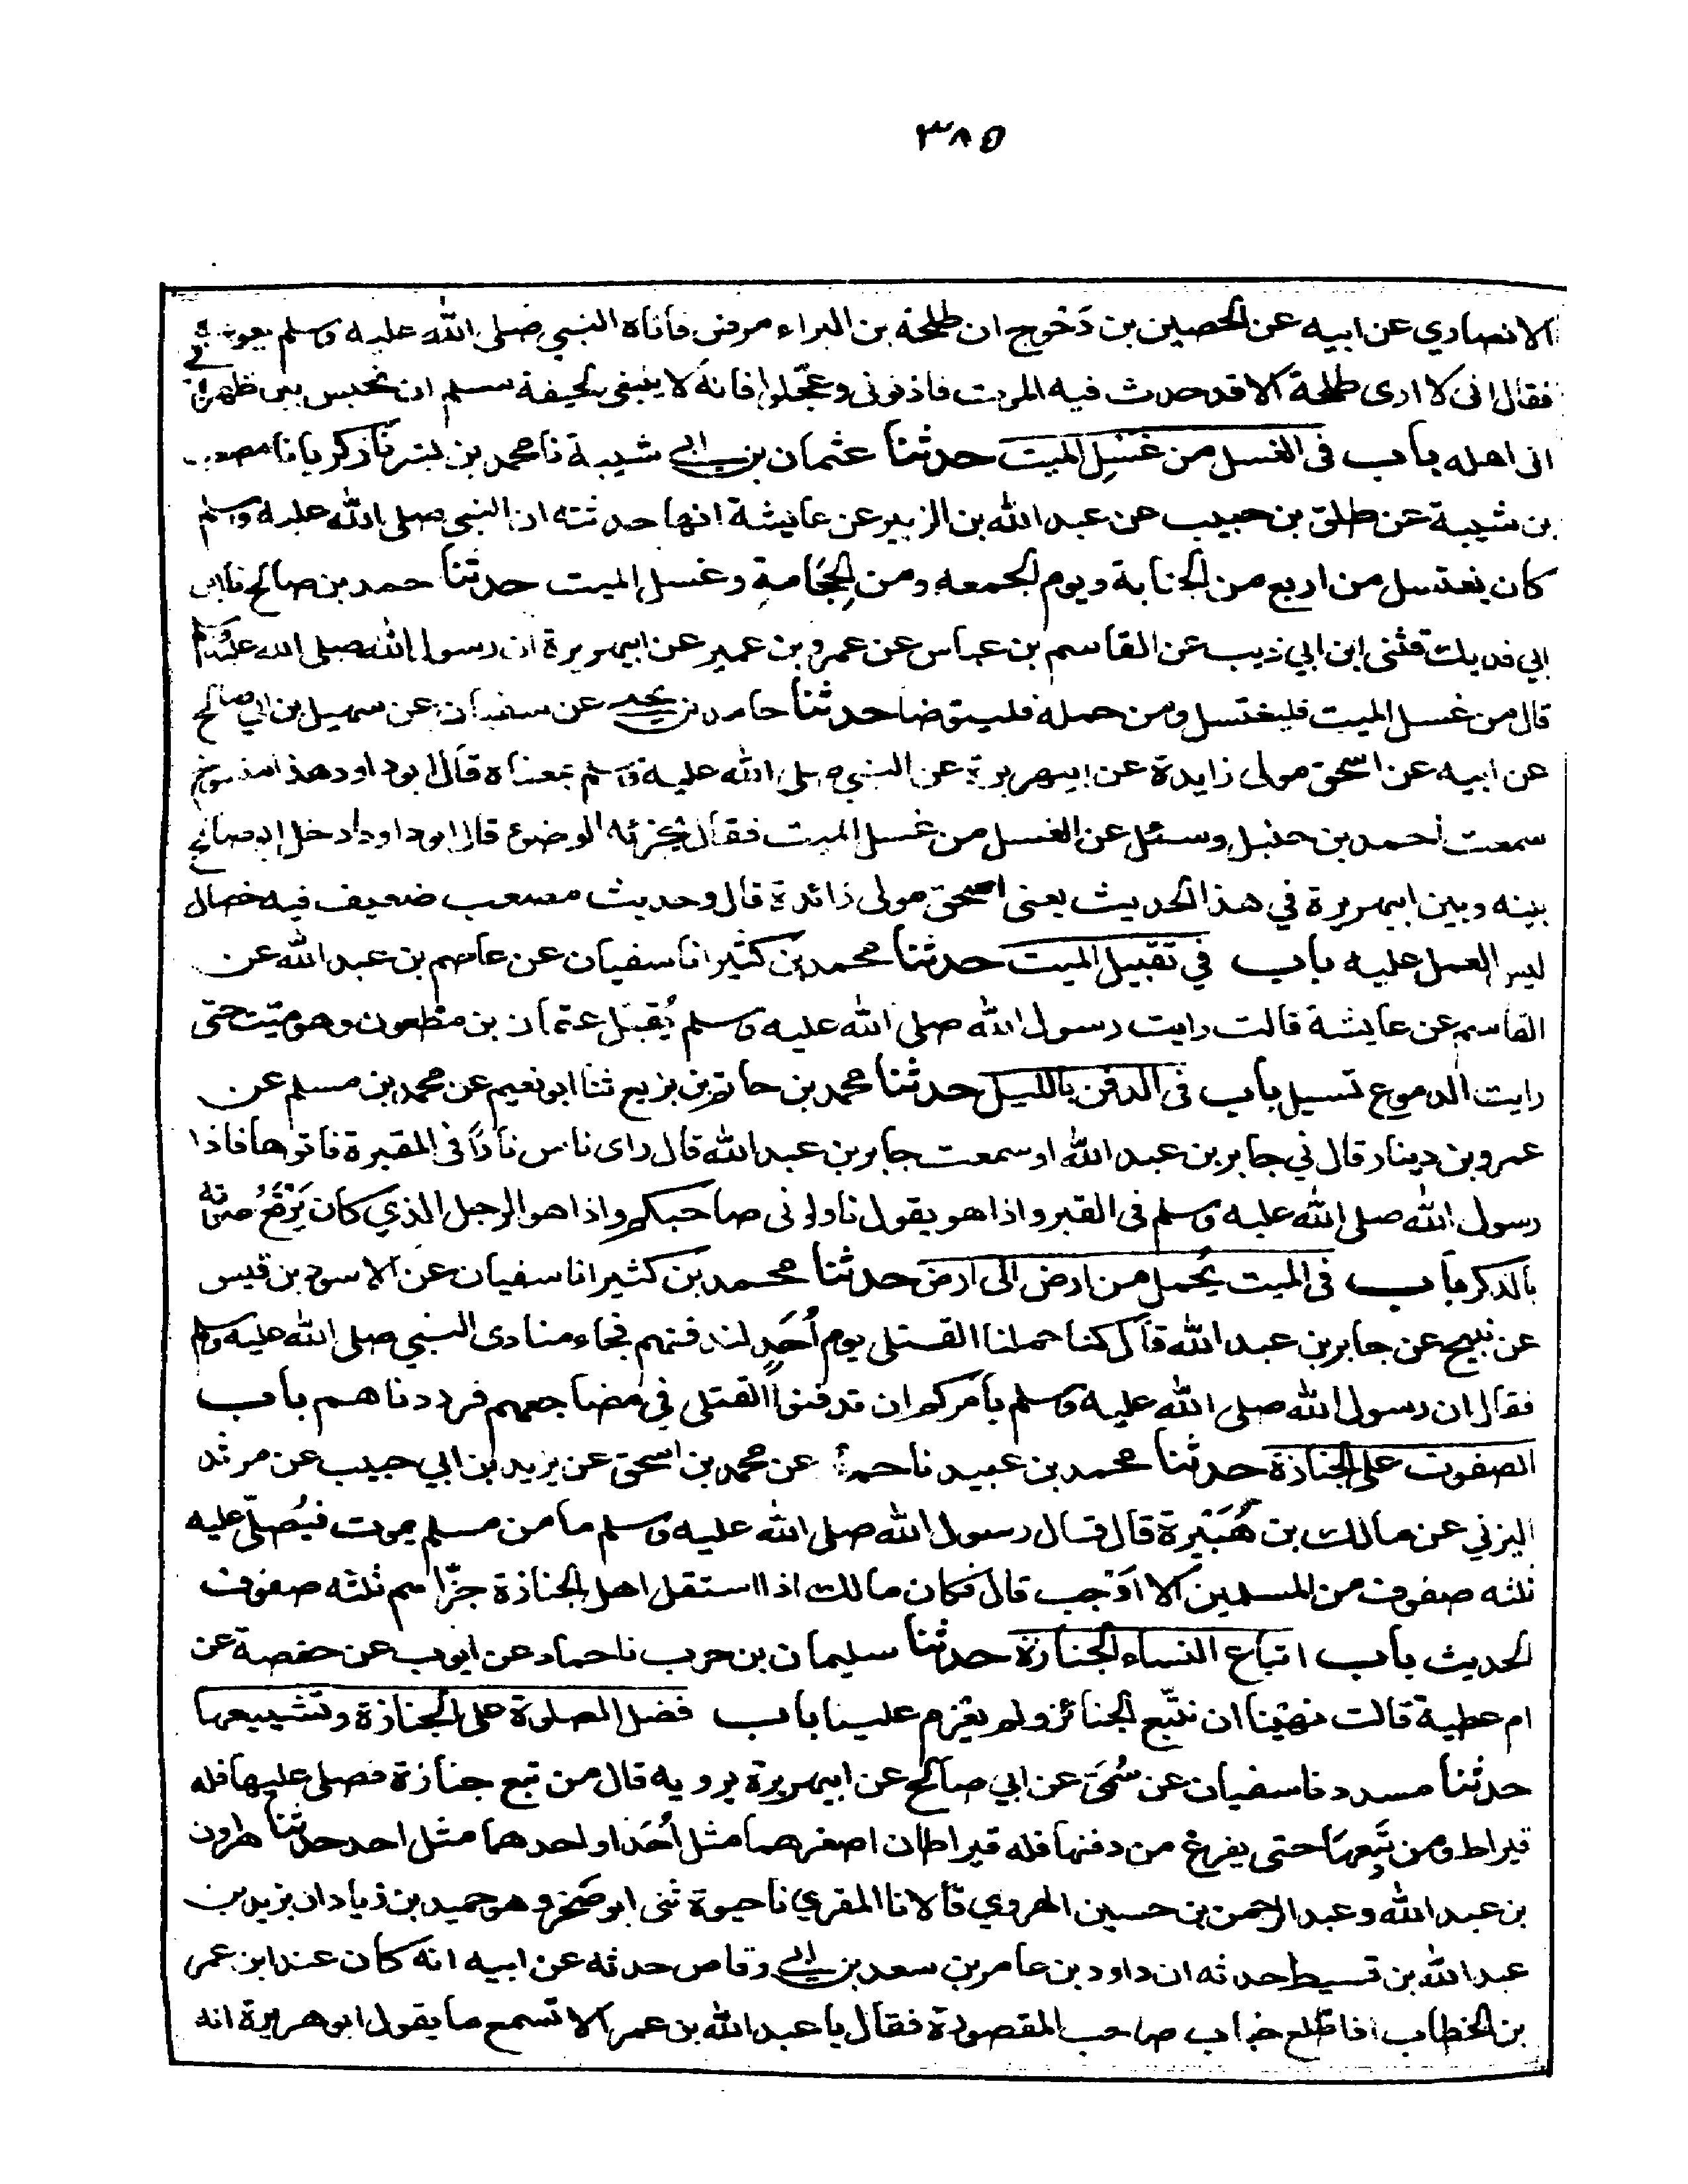 ٣٨٥
الانصاري عن ابيه عن الحصين بن دَحْوج ان طلحة بن البراء مرض فأتاه النبي صلى الله عليه وسلم يعوده
فقال انى لا ارى طلحة الا قد حدث فيه الموت فاذنونى وعجّلوا فانه لا ينبغى لجيفة مسلم ان تحبس بين ظهرانى
انى اهله باب فى الغسل من غسل الميت حدثنا عثمان بن ابي شيبة نا محمد بن بشر نا زكريا نا مصعب
بن شيبة عن طلق بن حبيب عن عبد الله بن الزبير عن عايشة انها حدثته ان النبي صلى الله عليه وسلم
كان يغتسل من اربع من الجنابة ويوم الجمعه ومن الحِجَامة وغسل الميت حدثنا احمد بن صالح نا ابن
ابي فديك قثنى ابن ابي ذيب عن القاسم بن عباس عن عمرو بن عمير عن ابيهريرة ان رسول الله صلى الله عليه وسلم
قال من غسل الميت فليغتسل ومن حمله فليتوضا حدثنا حامد بن يحيى عن سفيان عن سهيل بن ابي صالح
عن ابيه عن اسحق مولى زايدة عن ابيهريرة عن النبي صلى الله عليه وسلم بمعناه قال ابو داود هذا منسوخ
سمعت احمد بن حنبل وسئل عن الغسل من غسل الميت فقال يجزئه الوضوء قال ابو داود ادخل ابو صالح
بينه وبين ابيهريرة في هذا الحديث يعنى اسحق مولى زائدة قال وحديث مصعب ضعيف فيه خصال
ليس العمل عليه باب في تقبيل الميت حدثنا محمد بن كثير انا سفيان عن عاصم بن عبد الله عن
القاسم عن عايشة قالت رايت رسول الله صلى الله عليه وسلم يُقبّل عثمان بن مظعون وهو ميّت حتى
رايت الدموع تسيل باب فى الدفن بالليل حدثنا محمد بن حاتم بن بزيع ثنا ابو نعيم عن محمد بن مسلم عن
عمرو بن دينار قال ني جابر بن عبد الله او سمعت جابر بن عبد الله قال راى ناس نارًا فى المقبرة فاتوها فاذا
رسول الله صلى الله عليه وسلم فى القبر واذا هو يقول ناولونى صاحبكم واذا هو الرجل الذي كان يَرْفَعُ صوته
بالذكر باب فى الميت يُحمل من ارض الى ارض حدثنا محمد بن كثير انا سفيان عن الاسود بن قيس
عن نبيح عن جابر بن عبد الله قال كنا حملنا القتلى يوم أُحَدٍ لندفنهم فجاء منادى النبي صلى الله عليه وسلم
فقال ان رسول الله صلى الله عليه وسلم يأمركم ان تدفنوا القتلى في مضاجعهم فرددناهم باب
الصفوف على الجنازة حدثنا محمد بن عبيد نا حماد عن محمد بن اسحق عن يزيد بن ابي حبيب عن مرثد
اليزني عن مالك بن هُبَيْرة قال قال رسول الله صلى الله عليه وسلم ما من مسلم يموت فيُصلّى عليه
ثلثه صفوف من المسلمين الا اوْجب قال فكان مالك اذا استقل اهل الجنازة جزّأهم ثلثه صفوف
الحديث باب اتباع النساء الجنازة حدثنا سليمان بن حرب نا حماد عن ايوب عن حفصة عن
ام عطية قالت نهينا ان نتّبع الجنائز ولم يعْزم علينا باب فضل الصلوة على الجنازة وتشييعها
حدثنا مسدد نا سفيان عن سُمَىّ عن ابي صالح عن ابيهريرة يرويه قال من تبع جنازة فصلى عليها فله
قيراط ومن تَبِعهَا حتى يفرغ من دفنها فله قيراطان اصغرهما مثل أُحَد او احدهما مثل احد حدثنا هارون
بن عبد الله وعبد الرحمن بن حسين الهروي قالا نا المقري نا حيوة ثنى ابو صَخرٍ وهو حميد بن زياد ان يزيد بن
عبد الله بن قسيط حدثه ان داود بن عامر بن سعد بن ابي وقاص حدثه عن ابيه انه كان عند ابن عمر
بن الخطاب اذا طلع خباب صاحب المقصورة فقال يا عبد الله بن عمر الا تسمع ما يقول ابو هريرة انه